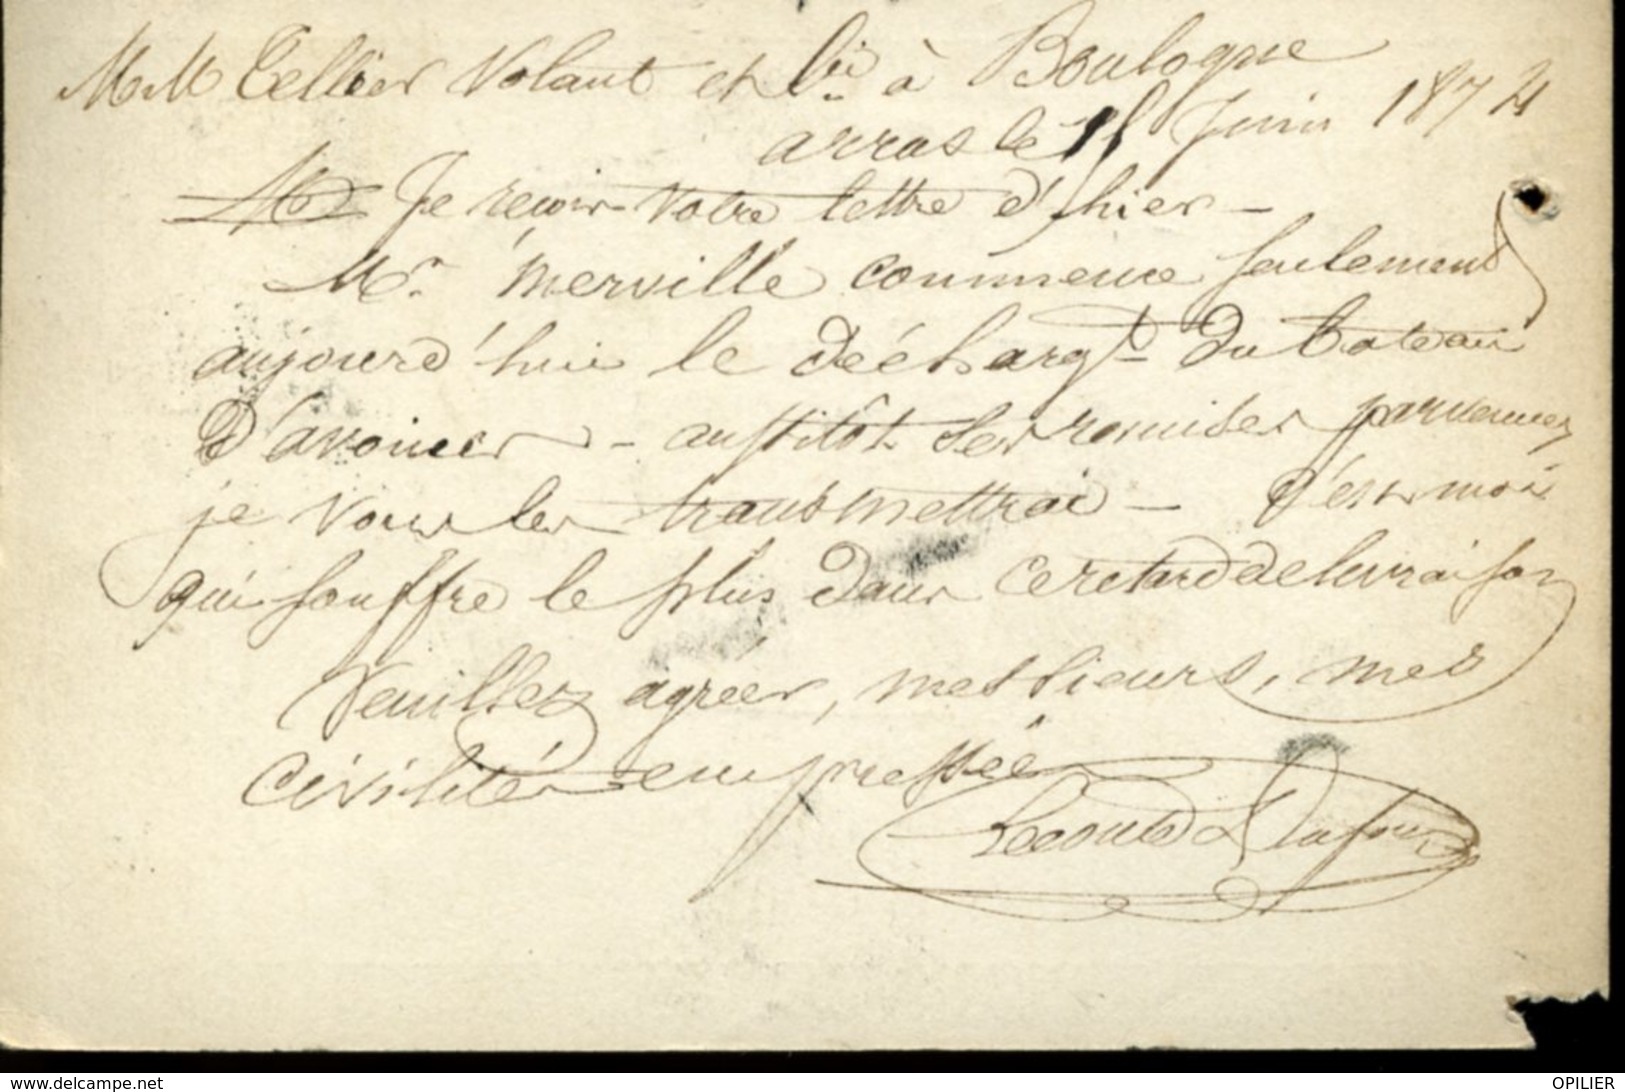 MM Tellier Volant et Cie à Boulogne
arras le Juin 1874
Je reçois votre lettre d'hier -
Mr. Merville commence seulement
aujourd'hui le déchargt. du bateau
d'avoines - aussitôt les remises parvenues
je vous les transmettrai - C'est moi
qui souffre le plus dans ce retard de livraison
Veuillez agréer, messieurs, mes
civilités empressées
Lecomte Dufour
www.delcampe.net
OPILIER